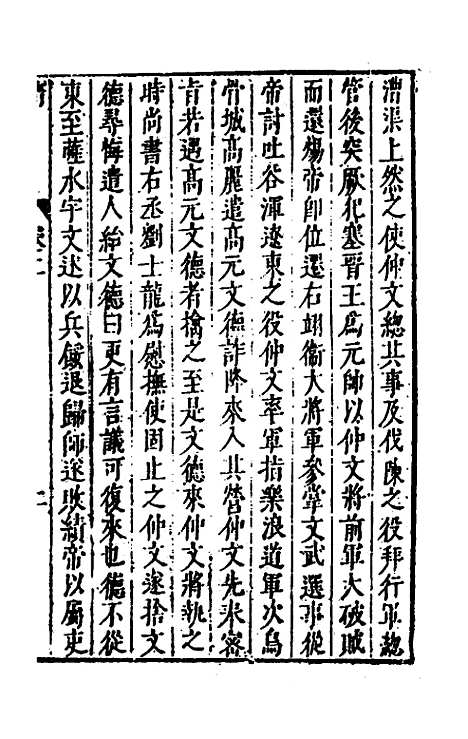 漕渠上然之使仲文總其事及伐陳之役拜行軍總
管後突厥犯塞晉王爲元帥以仲文將前軍大破賊
而還煬帝即位遷右翊衞大將軍參掌文武選事從
帝討吐谷渾遼東之役仲文率軍指樂浪道軍次烏
骨城高麗遣高元文德詐降來入其營仲文先奉密
旨若遇高元文德者擒之至是文德來仲文將執之
時尚書右丞劉士龍爲慰撫使固止之仲文遂捨文
德尋悔遣人紿文德曰更有言議可復來也德不從
東至薩水宇文述以兵餒退歸師遂敗績帝以屬吏